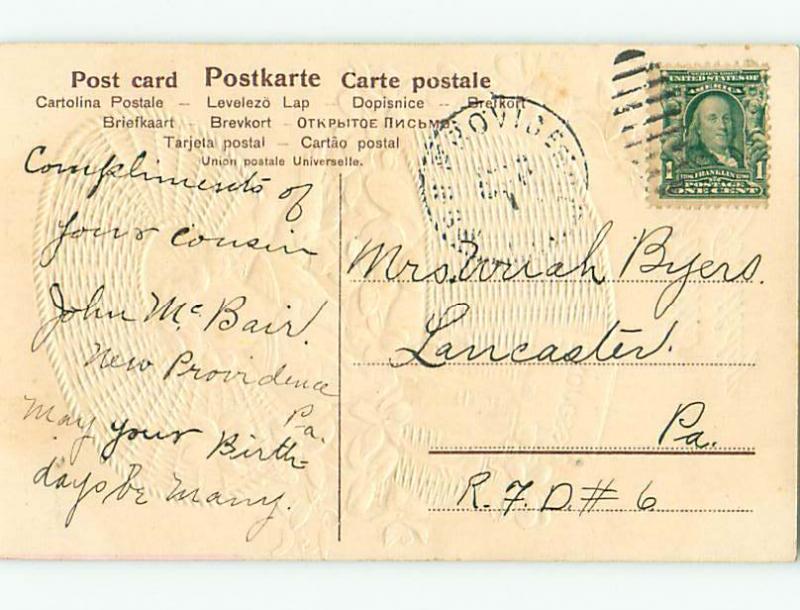 Post card Postkarte Carte postale
Cartolina Postale – Levelező Lap – Dopisnice – Brefkort
Briefkaart – Brevkort – ОТКРЫТОЕ ПИСЬМО
Tarjeta postal – Cartão postal
Union postale Universelle.
Compliments of
your cousin
John Mc. Bair.
New Providence
Pa.
May your Birth-
days be Many.
SERIES 1902
UNITED STATES OF
AMERICA
1 FRANKLIN 1
POSTAGE
ONE CENT
Mrs. Uriah Byers.
Lancaster.
Pa.
R.F.D. # 6